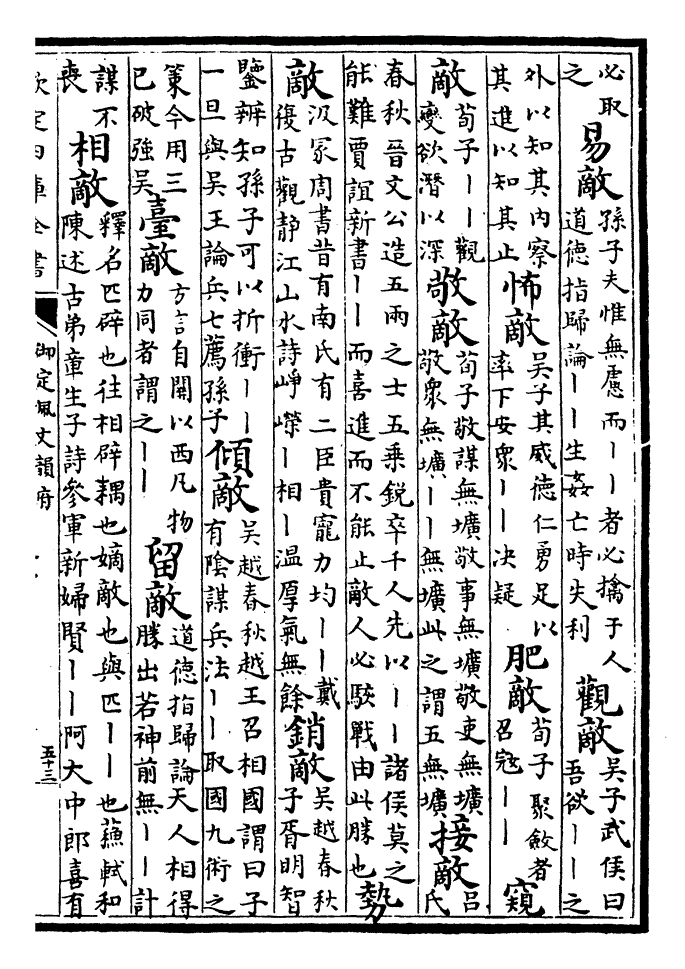 必取
之
易敵
孫子夫惟無慮而丨丨者必擒于人
道德指歸論丨丨生姦亡時失利
觀敵
吴子武侯曰
吾欲丨丨之
外以知其内察
其進以知其止
怖敵
吴子其威德仁勇足以
率下安衆丨丨决疑
肥敵
荀子聚斂者
召冦丨丨
窺
敵
荀子丨丨觀
變欲潛以深
敬敵
荀子敬謀無壙敬事無壙敬吏無壙
敬衆無壙丨丨無壙此之謂五無壙
接敵
吕
氏
春秋晉文公造五兩之士五乘鋭卒千人先以丨丨諸侯莫之
能難賈誼新書丨丨而喜進而不能止敵人必駭戰由此勝也
勢
敵
汲冢周書昔有南氏有二臣貴寵力均丨丨戴
復古觀静江山水詩崢嶸丨相丨温厚氣無餘
銷敵
吴越春秋
子胥明智
鑒辨知孫子可以折衝丨丨
一旦與吴王論兵七薦孫子
傾敵
吴越春秋越王召相國謂曰子
有陰謀兵法丨丨取國九術之
策今用三
已破強吴
臺敵
方言自關以西凡物
力同者謂之丨丨
留敵
道德指歸論天人相得
勝出若神前無丨丨計
謀不
喪
相敵
釋名匹辟也往相辟耦也嫡敵也與匹丨丨也蘇軾和
陳述古弟童生子詩參軍新婦賢丨丨阿大中郎喜有
欽定四庫全書
御定佩文韻府
五十三